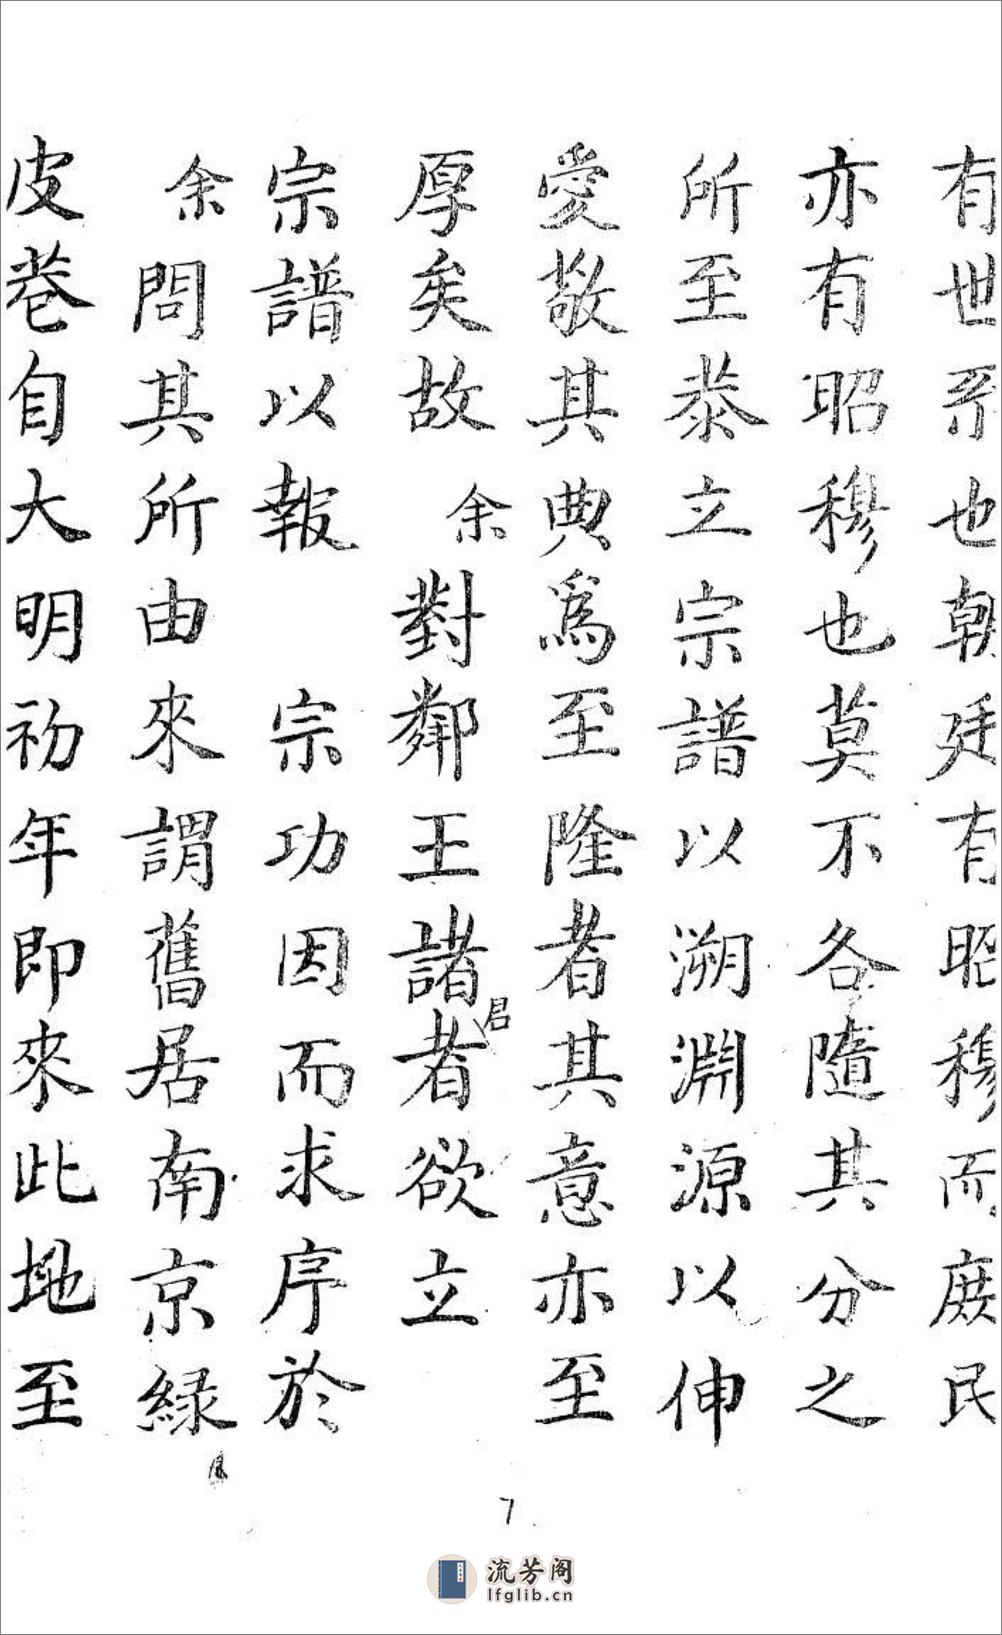 有世系也朝廷有昭穆而庶民
亦有昭穆也莫不各隨其分之
所至恭立宗譜以溯淵源以伸
愛敬其典爲至隆者其意亦至
厚矣故余對鄰王諸者欲立
君
宗譜以報宗功因而求序於
余問其所由來謂舊居南京緑
皮巷自大明初年即來此地至
7
流芳阁
lfglib.cn